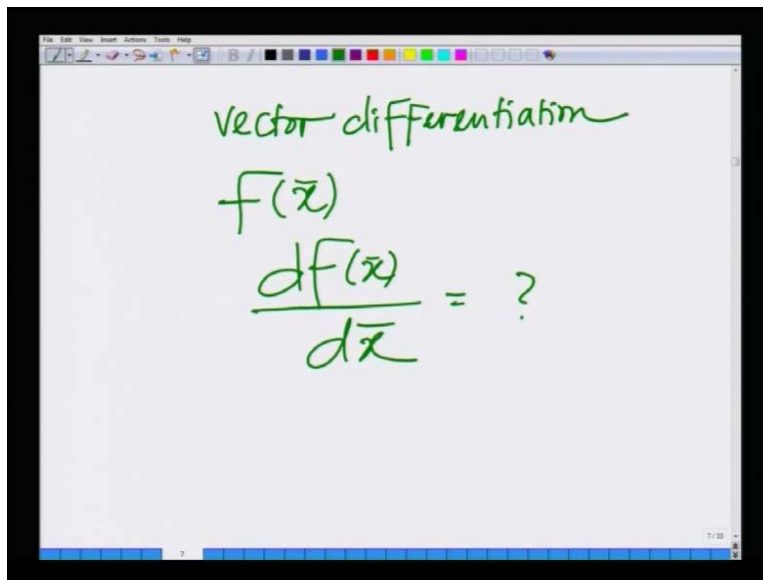 File Edit View Insert Actions Tools Help
B I
vector differentiation
F(x̄)
dF(x̄)
/ dx̄ = ?
7/33
7